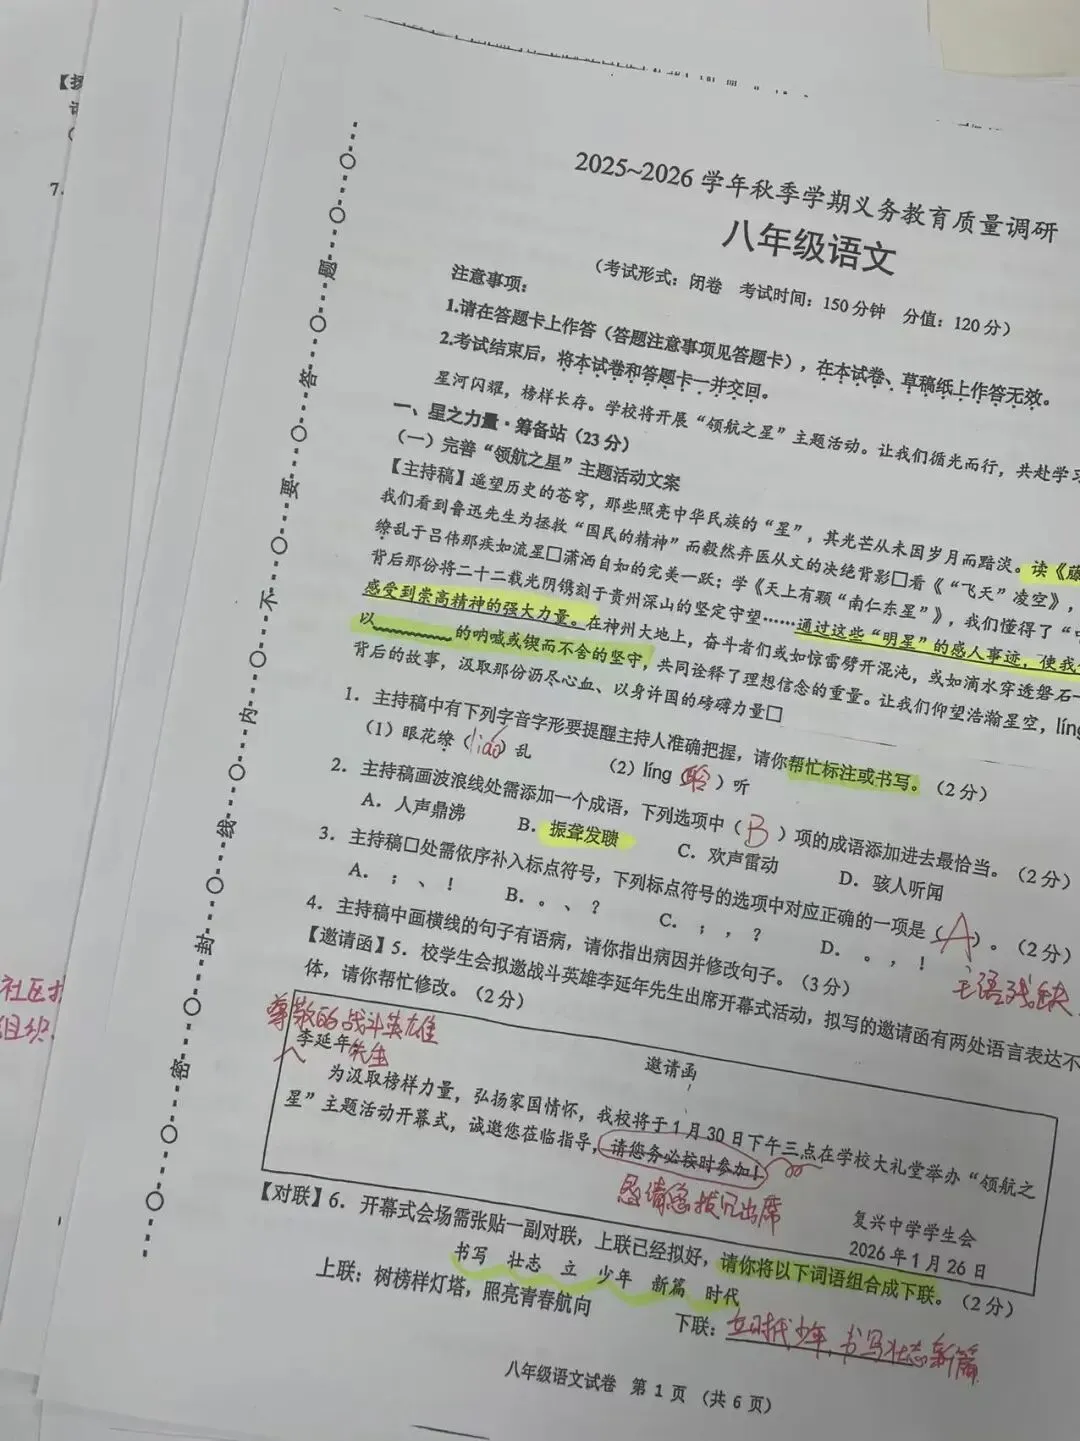 2025~2026 学年秋季学期义务教育质量调研
八年级语文
(考试形式：闭卷 考试时间：150分钟 分值：120分)
注意事项：
1.请在答题卡上作答（答题注意事项见答题卡），在本试卷、草稿纸上作答无效。
2.考试结束后，将本试卷和答题卡一并交回。
星河闪耀，榜样长存。学校将开展“领航之星”主题活动。让我们循光而行，共赴学习
一、星之力量·筹备站（23分）
（一）完善“领航之星”主题活动文案
【主持稿】遥望历史的苍穹，那些照亮中华民族的“星”，其光芒从未因岁月而黯淡。读《藤
我们看到鲁迅先生为拯救“国民的精神”而毅然弃医从文的决绝背影□看《“飞天”凌空》，
缭乱于吕伟那疾如流星□潇洒自如的完美一跃；学《天上有颗“南仁东星”》，我们懂得了
背后那份将二十二载光阴镌刻于贵州深山的坚定守望……通过这些“明星”的感人事迹，使我
感受到崇高精神的强大力量。在神州大地上，奋斗者们或如惊雷劈开混沌，或如滴水穿透磐石
以 的呐喊或锲而不舍的坚守，共同诠释了理想信念的重量。让我们仰望浩瀚星空，líng
背后的故事，汲取那份沥尽心血、以身许国的磅礴力量□
1. 主持稿中有下列字音字形要提醒主持人准确把握，请你帮忙标注或书写。（2分）
（1）眼花缭（liáo）乱 （2）líng（聆）听
2. 主持稿画波浪线处需添加一个成语，下列选项中（B）项的成语添加进去最恰当。（2分）
A. 人声鼎沸 B. 振聋发聩 C. 欢声雷动 D. 骇人听闻
3. 主持稿□处需依序补入标点符号，下列标点符号的选项中对应正确的一项是（A）。（2分）
A. ；、！ B. 。、？ C. ；，？ D. 。，！
4. 主持稿中画横线的句子有语病，请你指出病因并修改句子。（3分）
主语残缺
【邀请函】5. 校学生会拟邀战斗英雄李延年先生出席开幕式活动，拟写的邀请函有两处语言表达不
体，请你帮忙修改。（2分）
邀请函
尊敬的战斗英雄
李延年先生
为汲取榜样力量，弘扬家国情怀，我校将于1月30日下午三点在学校大礼堂举办“领航之
星”主题活动开幕式，诚邀您莅临指导，请您务必按时参加！
恳请您拨冗出席
复兴中学学生会
2026年1月26日
【对联】6. 开幕式会场需张贴一副对联，上联已经拟好，请你将以下词语组合成下联。（2分）
书写 壮志 立 少年 新篇 时代
上联：树榜样灯塔，照亮青春航向 下联：立时代少年，书写壮志新篇
八年级语文试卷 第1页（共6页）
题
答
要
不
内
线
封
密
7.
社区
组织